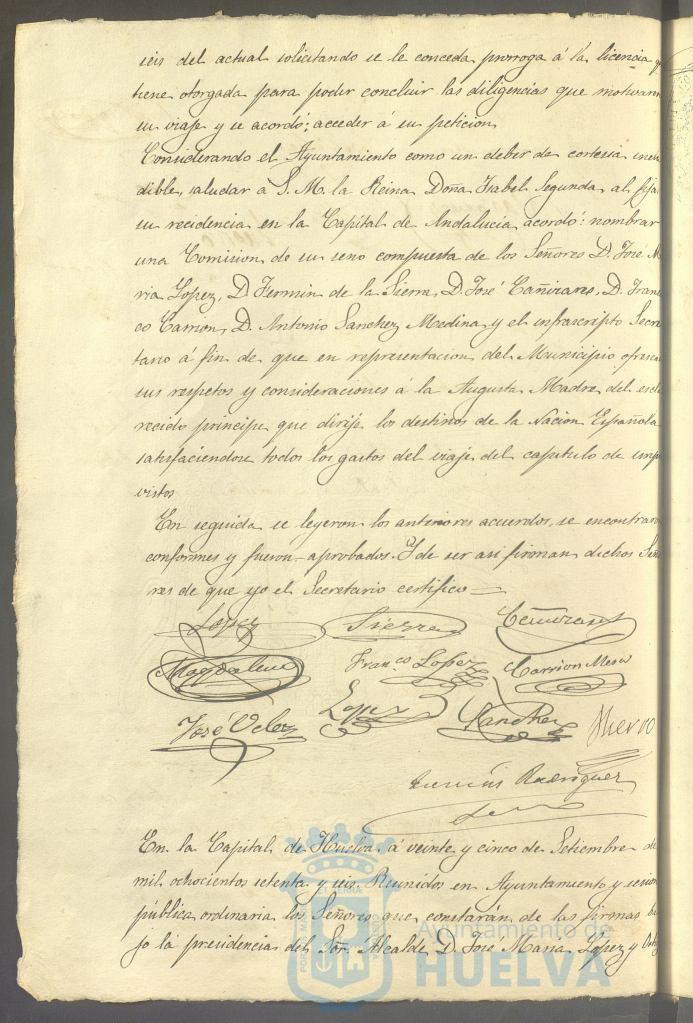 seis del actual solicitando se le conceda prorroga á la licencia q
tiene otorgada para poder concluir las diligencias que motivaron
su viaje y se acordó; acceder á su peticion
Considerando el Ayuntamiento como un deber de cortesia inelu
dible, saludar á S. M. la Reina Doña Isabel Segunda al fijar
su recidencia en la Capital de Andalucia, acordó: nombrar
una Comision de su seno compuesta de los Señores D. José Ma
ria Lopez, D. Fermin de la Sierra, D. José Cañizares, D. Francis
co Carrion, D. Antonio Sanchez Medina y el infrascripto Secre
tario á fin de que en representacion del Municipio ofrescan
sus respetos y consideraciones á la Augusta Madre del escla
recido principe que dirije los destinos de la Nacion Española
satisfaciendose todos los gastos del viaje del capitulo de impre
vistos
En seguida se leyeron los anteriores acuerdos, se encontraron
conformes y fueron aprobados. Y de ser asi firman dichos Seño
res de que yo el Secretario certifico =
Lopez Sierra Cañizares
Magdalena Franco Lopez Carrion Mesa
José Velez Lopez Sanchez
Rodriguez
En la Capital de Huelva á veinte y cinco de Setiembre de
mil ochocientos setenta y seis. Reunidos en Ayuntamiento y sesion
pública ordinaria los Señores que constarán de las firmas ba
jo la presidencia del Sor. Alcalde D. José Maria Lopez y
Ayuntamiento de
HUELVA